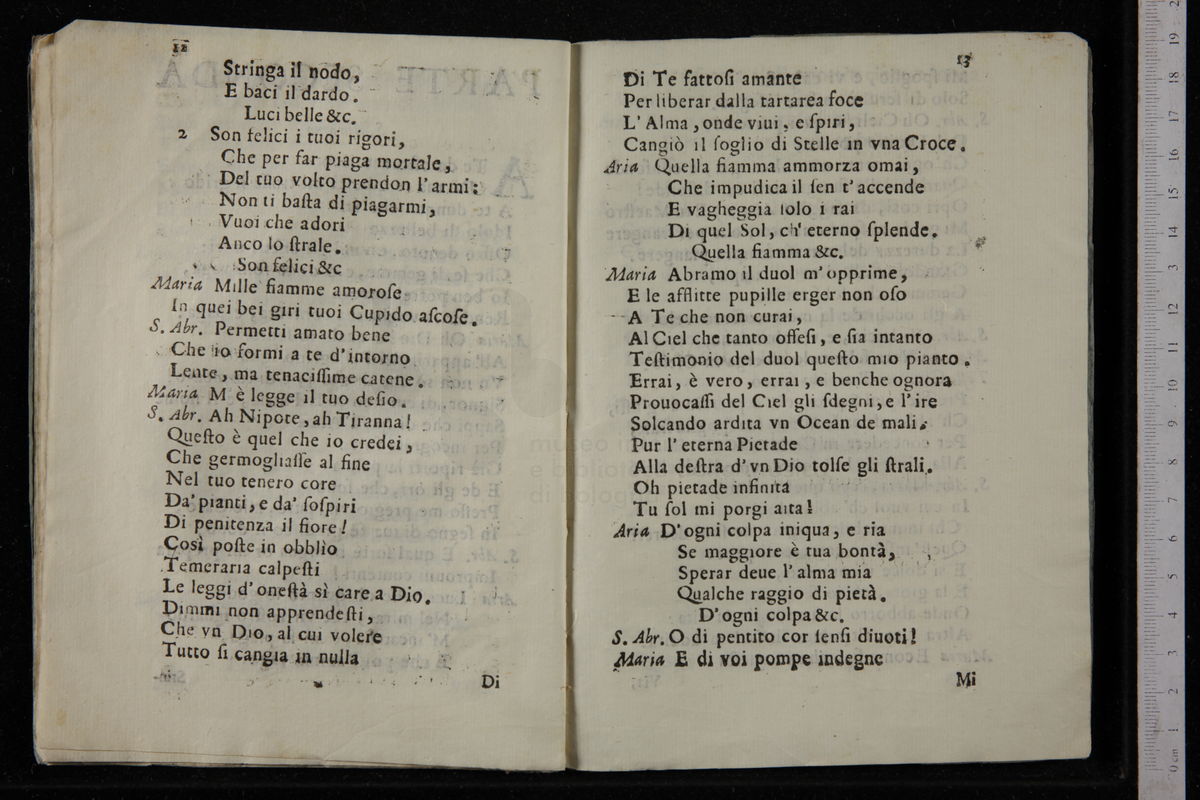 12
Stringa il nodo,
E baci il dardo.
Luci belle &c.
2 Son felici i tuoi rigori,
Che per far piaga mortale,
Del tuo volto prendon l'armi:
Non ti baſta di piagarmi,
Vuoi che adori
Anco lo ſtrale.
Son felici &c
Maria Mille fiamme amoroſe
In quei bei giri tuoi Cupido aſcoſe.
S. Abr. Permetti amato bene
Che io formi a te d'intorno
Lente, ma tenaciſſime catene.
Maria M è legge il tuo deſio.
S. Abr. Ah Nipote, ah Tiranna!
Queſto è quel che io credei,
Che germogliaſſe al fine
Nel tuo tenero core
Da' pianti, e da' ſoſpiri
Di penitenza il fiore!
Così poſte in obblìo
Temeraria calpeſti
Le leggi d'oneſtà sì care a Dio.
Dimmi non apprendeſti,
Che vn Dio, al cui volere
Tutto ſi cangia in nulla
Di
13
Di Te fattoſi amante
Per liberar dalla tartarea foce
L'Alma, onde viui, e ſpiri,
Cangiò il ſoglio di Stelle in vna Croce.
Aria Quella fiamma ammorza omai,
Che impudica il ſen t'accende
E vagheggia ſolo i rai
Di quel Sol, ch' eterno ſplende.
Quella fiamma &c.
Maria Abramo il duol m'opprime,
E le afflitte pupille erger non oſo
A Te che non curai,
Al Ciel che tanto offeſi, e ſia intanto
Teſtimonio del duol queſto mio pianto.
Errai, è vero, errai, e benche ognora
Prouocaſſi del Ciel gli ſdegni, e l'ire
Solcando ardita vn Ocean de mali,
Pur l'eterna Pietade
Alla deſtra d'vn Dio tolſe gli ſtrali.
Oh pietade infinita
Tu ſol mi porgi aita!
Aria D'ogni colpa iniqua, e ria
Se maggiore è tua bontà,
Sperar deue l'alma mia
Qualche raggio di pietà.
D'ogni colpa &c.
S. Abr. O di pentito cor ſenſi diuoti!
Maria E di voi pompe indegne
Mi